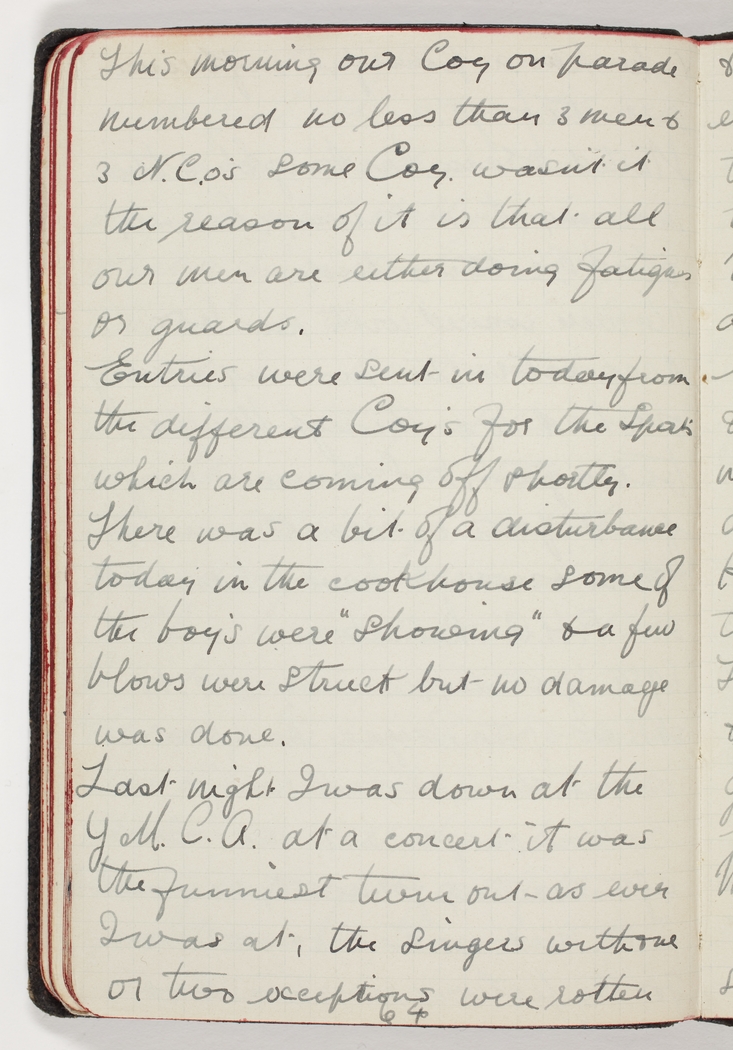 This morning our Coy on parade
numbered no less than 3 men &
3 N.C.o's some Coy. wasn't it
the reason of it is that all
our men are either doing fatigues
or guards.
Entries were sent in today from
the different Coy's for the Sports
which are coming off shortly.
There was a bit of a disturbance
today in the cookhouse some of
the boy's were "showing" & a few
blows were struck but no damage
was done.
Last night I was down at the
Y.M.C.A. at a concert it was
the funniest turn out as ever
I was at, the singers with one
or two exceptions were rotten
64